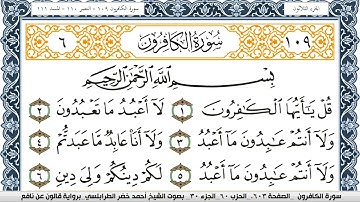 الجزء الثلاثون
سورة الكافرون ١٠٩ - النصر ١١٠ - المسد ١١١
١٠٩ سُورَةُ الْكَافِرُونَ ٦
بِسْمِ اللَّهِ الرَّحْمَٰنِ الرَّحِيمِ
قُلْ يَٰٓأَيُّهَا ٱلْكَٰفِرُونَ ١ لَآ أَعْبُدُ مَا تَعْبُدُونَ ٢
وَلَآ أَنتُمْ عَٰبِدُونَ مَآ أَعْبُدُ ٣ وَلَآ أَنَا۠ عَابِدٞ مَّا عَبَدتُّمْ ٤
وَلَآ أَنتُمْ عَٰبِدُونَ مَآ أَعْبُدُ ٥ لَكُمْ دِينُكُمْ وَلِيَ دِينِ ٦
سورة الكافرون الصفحة ٦٠٣ - الحزب ٦٠ الجزء ٣٠ بصوت الشيخ أحمد خضر الطرابلسي برواية قالون عن نافع